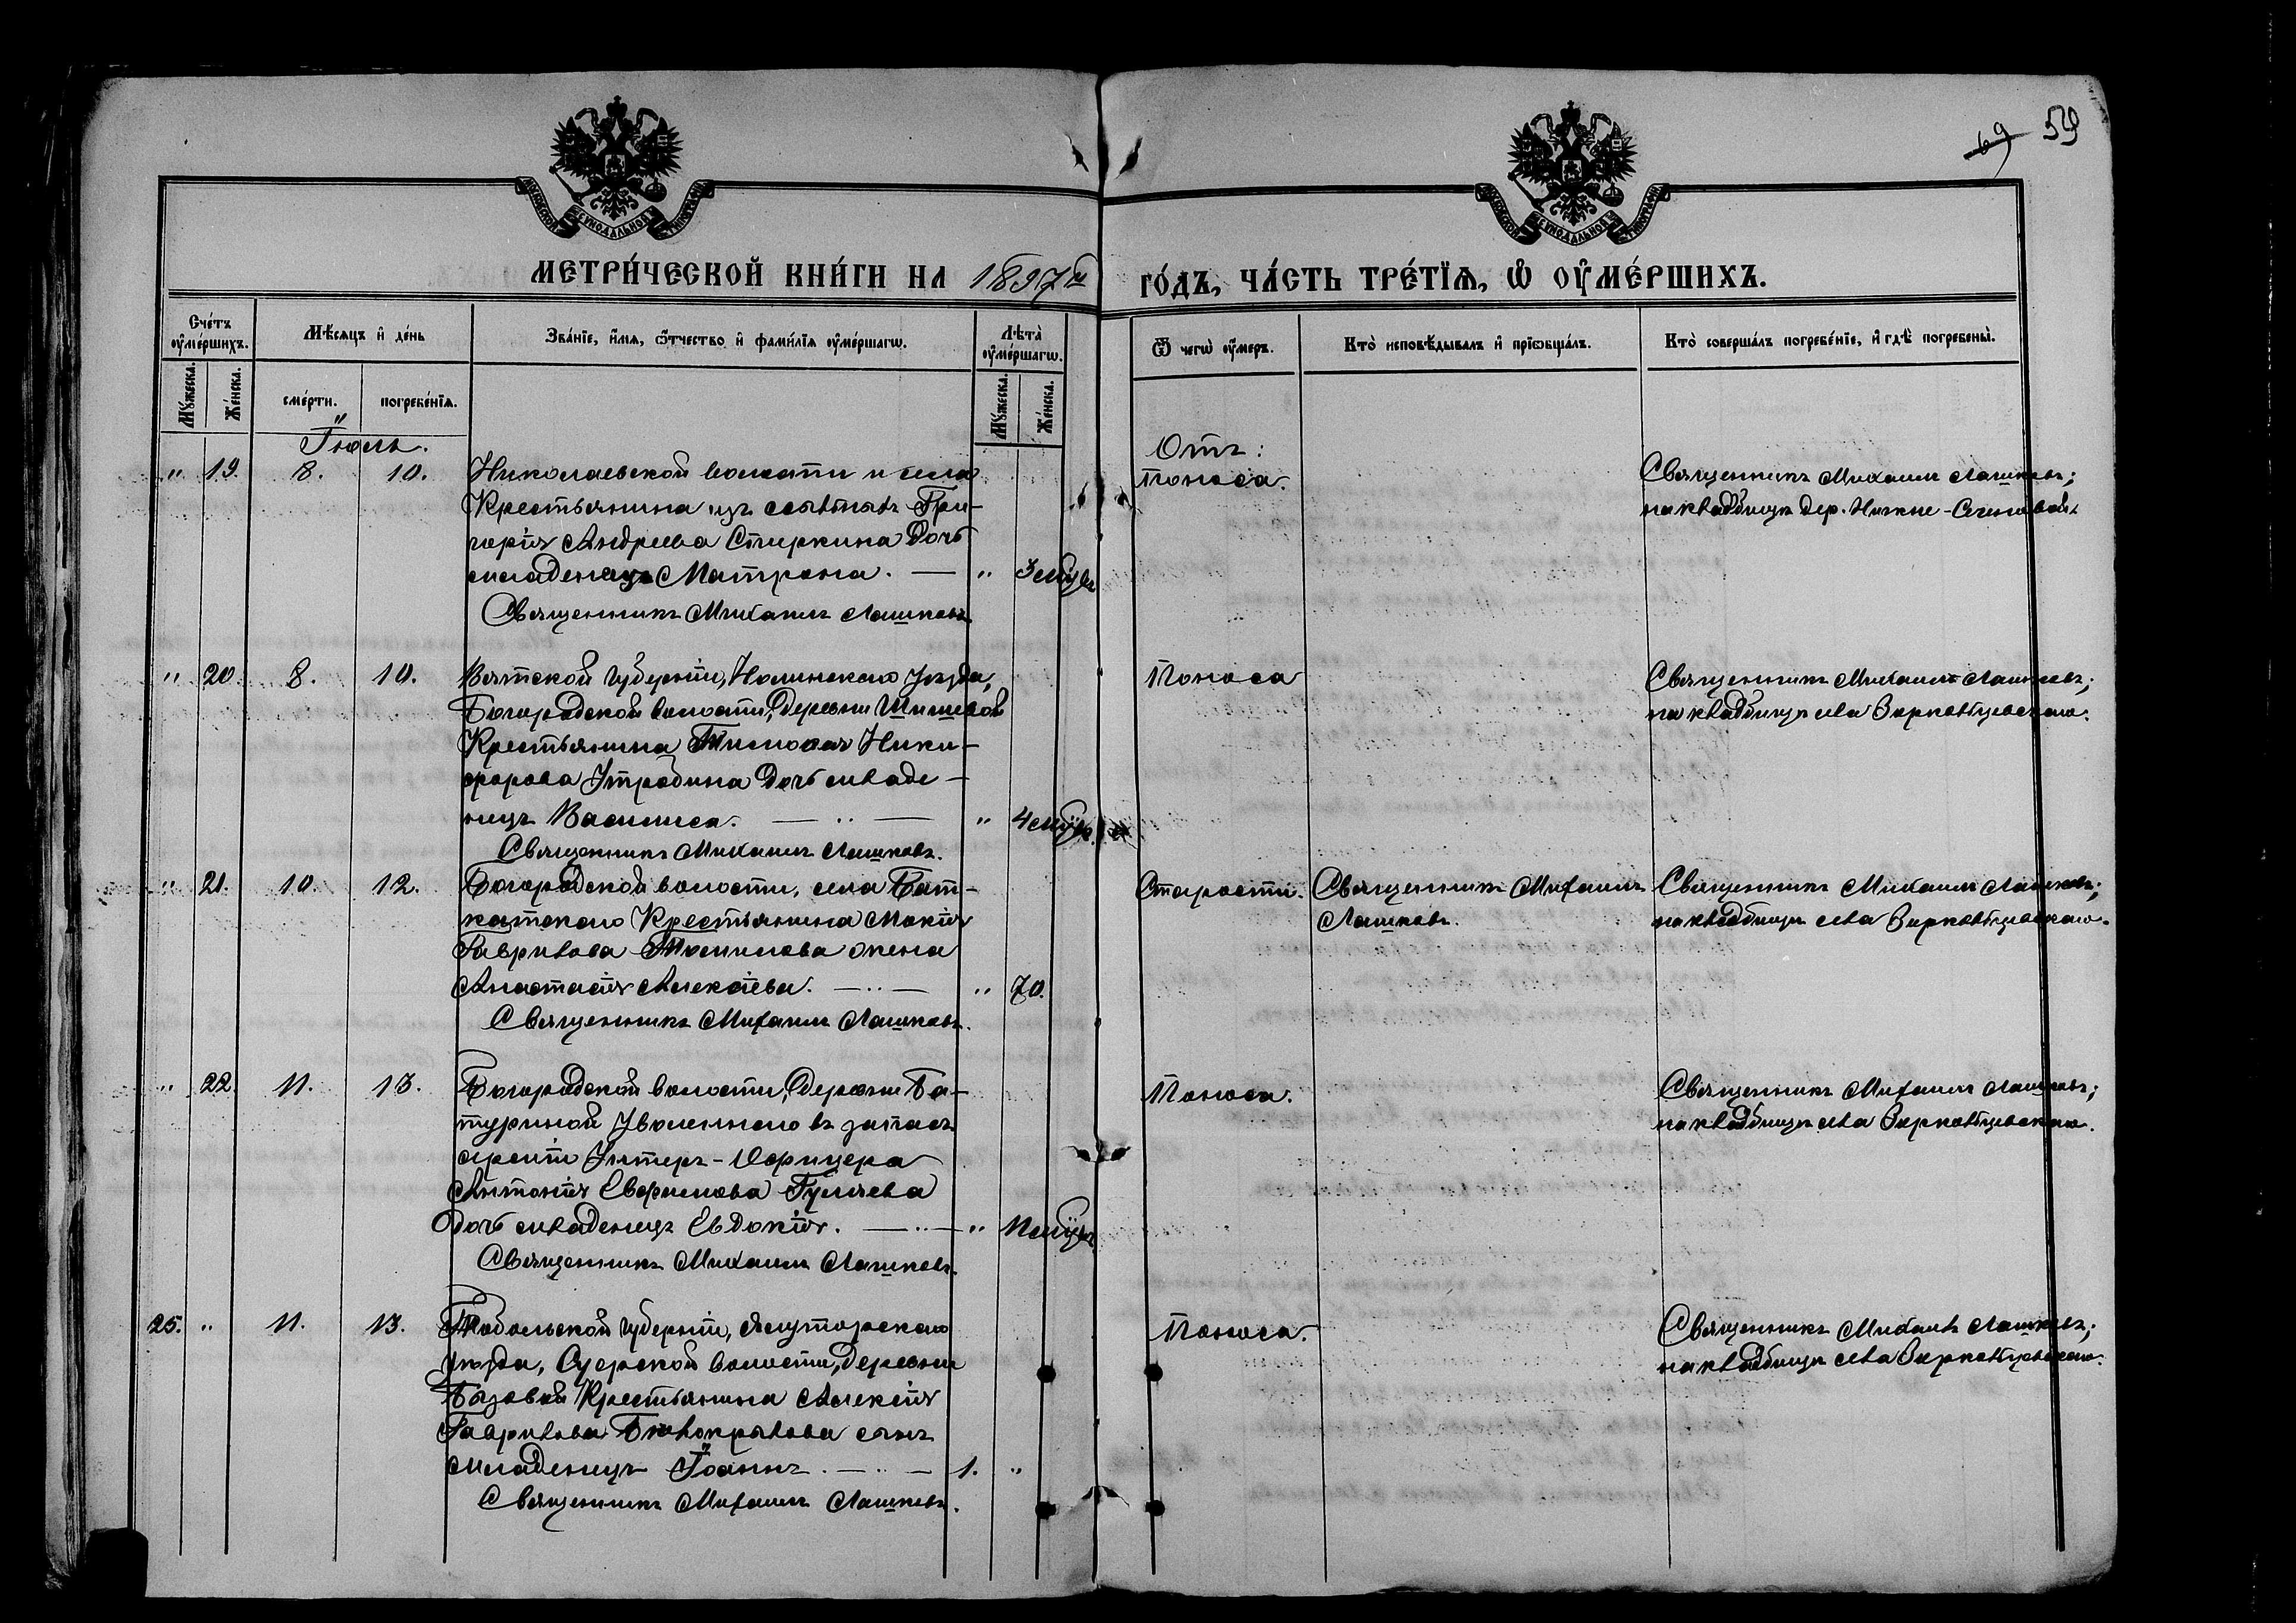 69 59
МОСКОВСКОЙ СѴНОДАЛЬНОЙ ТИПОГРАФІИ
МОСКОВСКОЙ СѴНОДАЛЬНОЙ ТИПОГРАФІИ
МЕТРИ́ЧЕСКОЙ КНИ́ГИ НА 1897й ГО́ДЪ, ЧА́СТЬ ТРЕ́ТІѦ, Ѡ ОУ҆МЕ́РШИХЪ.
Сче́тъ оу҆ме́ршихъ.
Мꙋ́жеска.
Же́нска.
Мѣ́сяцъ и҆ де́нь
сме́рти.
погребе́нїѧ.
Зва́нїе, и҆́мѧ, ѻ҆́тчество и҆ фами́лїѧ оу҆ме́ршагѡ.
Лѣта̀ оу҆ме́ршагѡ.
Мꙋ́жеска.
Же́нска.
Ѿ чегѡ̀ оу҆́меръ.
Кто̀ и҆сповѣ́дывалъ и҆ прїѡбща́лъ.
Кто̀ соверша́лъ погребе́нїе, и҆ гдѣ̀ погребены̀.
Іюль.
" 19. 8. 10.
Николаевской волости и села
Крестьянина изъ ссыльныхъ Гри-
горія Андреева Стиркина дочь
младенецъ Матрона. — " 3 мѣц.
Священникъ Михаилъ Лашковъ.
Отъ:
поноса.
Священникъ Михаилъ Лашковъ;
на кладбищѣ дер. Нижне-
" 20. 8. 10.
Вятской губерніи, Нолинскаго уѣзда,
Богородской волости, деревни Шишевой
Крестьянина Тимоѳея Ники-
форова Утробина дочь младе-
нецъ Василиса. — " — " 4 мѣц.
Священникъ Михаилъ Лашковъ.
Поноса
Священникъ Михаилъ Лашковъ;
на кладбищѣ села Зырковцевскаго.
" 21. 10. 12.
Богородской волости, села Бат-
катскаго Крестьянина Мокія
Гаврилова Томилова жена
Анастасія Алексіева. — " — " 70.
Священникъ Михаилъ Лашковъ.
Старости.
Священникъ Михаилъ
Лашковъ.
Священникъ Михаилъ Лашковъ;
на кладбищѣ села Зырковцевскаго.
" 22. 11. 13.
Богородской волости, деревни Ба-
туриной Уволеннаго въ запасъ
арміи Унтеръ-Офицера
Антонія Евфимова Гуляева
дочь младенецъ Евдокія. — " — " 11 мѣц.
Священникъ Михаилъ Лашковъ.
Поноса.
Священникъ Михаилъ Лашковъ;
на кладбищѣ села Зырковцевскаго.
25. " 11. 13.
Тобольской губерніи, Ялуторскаго
уѣзда, Суерской волости, деревни
Бызовой Крестьянина Алексія
Гаврилова Бѣлокрылова сынъ
младенецъ Іоаннъ. — " — 1. "
Священникъ Михаилъ Лашковъ.
Поноса.
Священникъ Михаилъ Лашковъ;
на кладбищѣ села Зырковцевскаго.